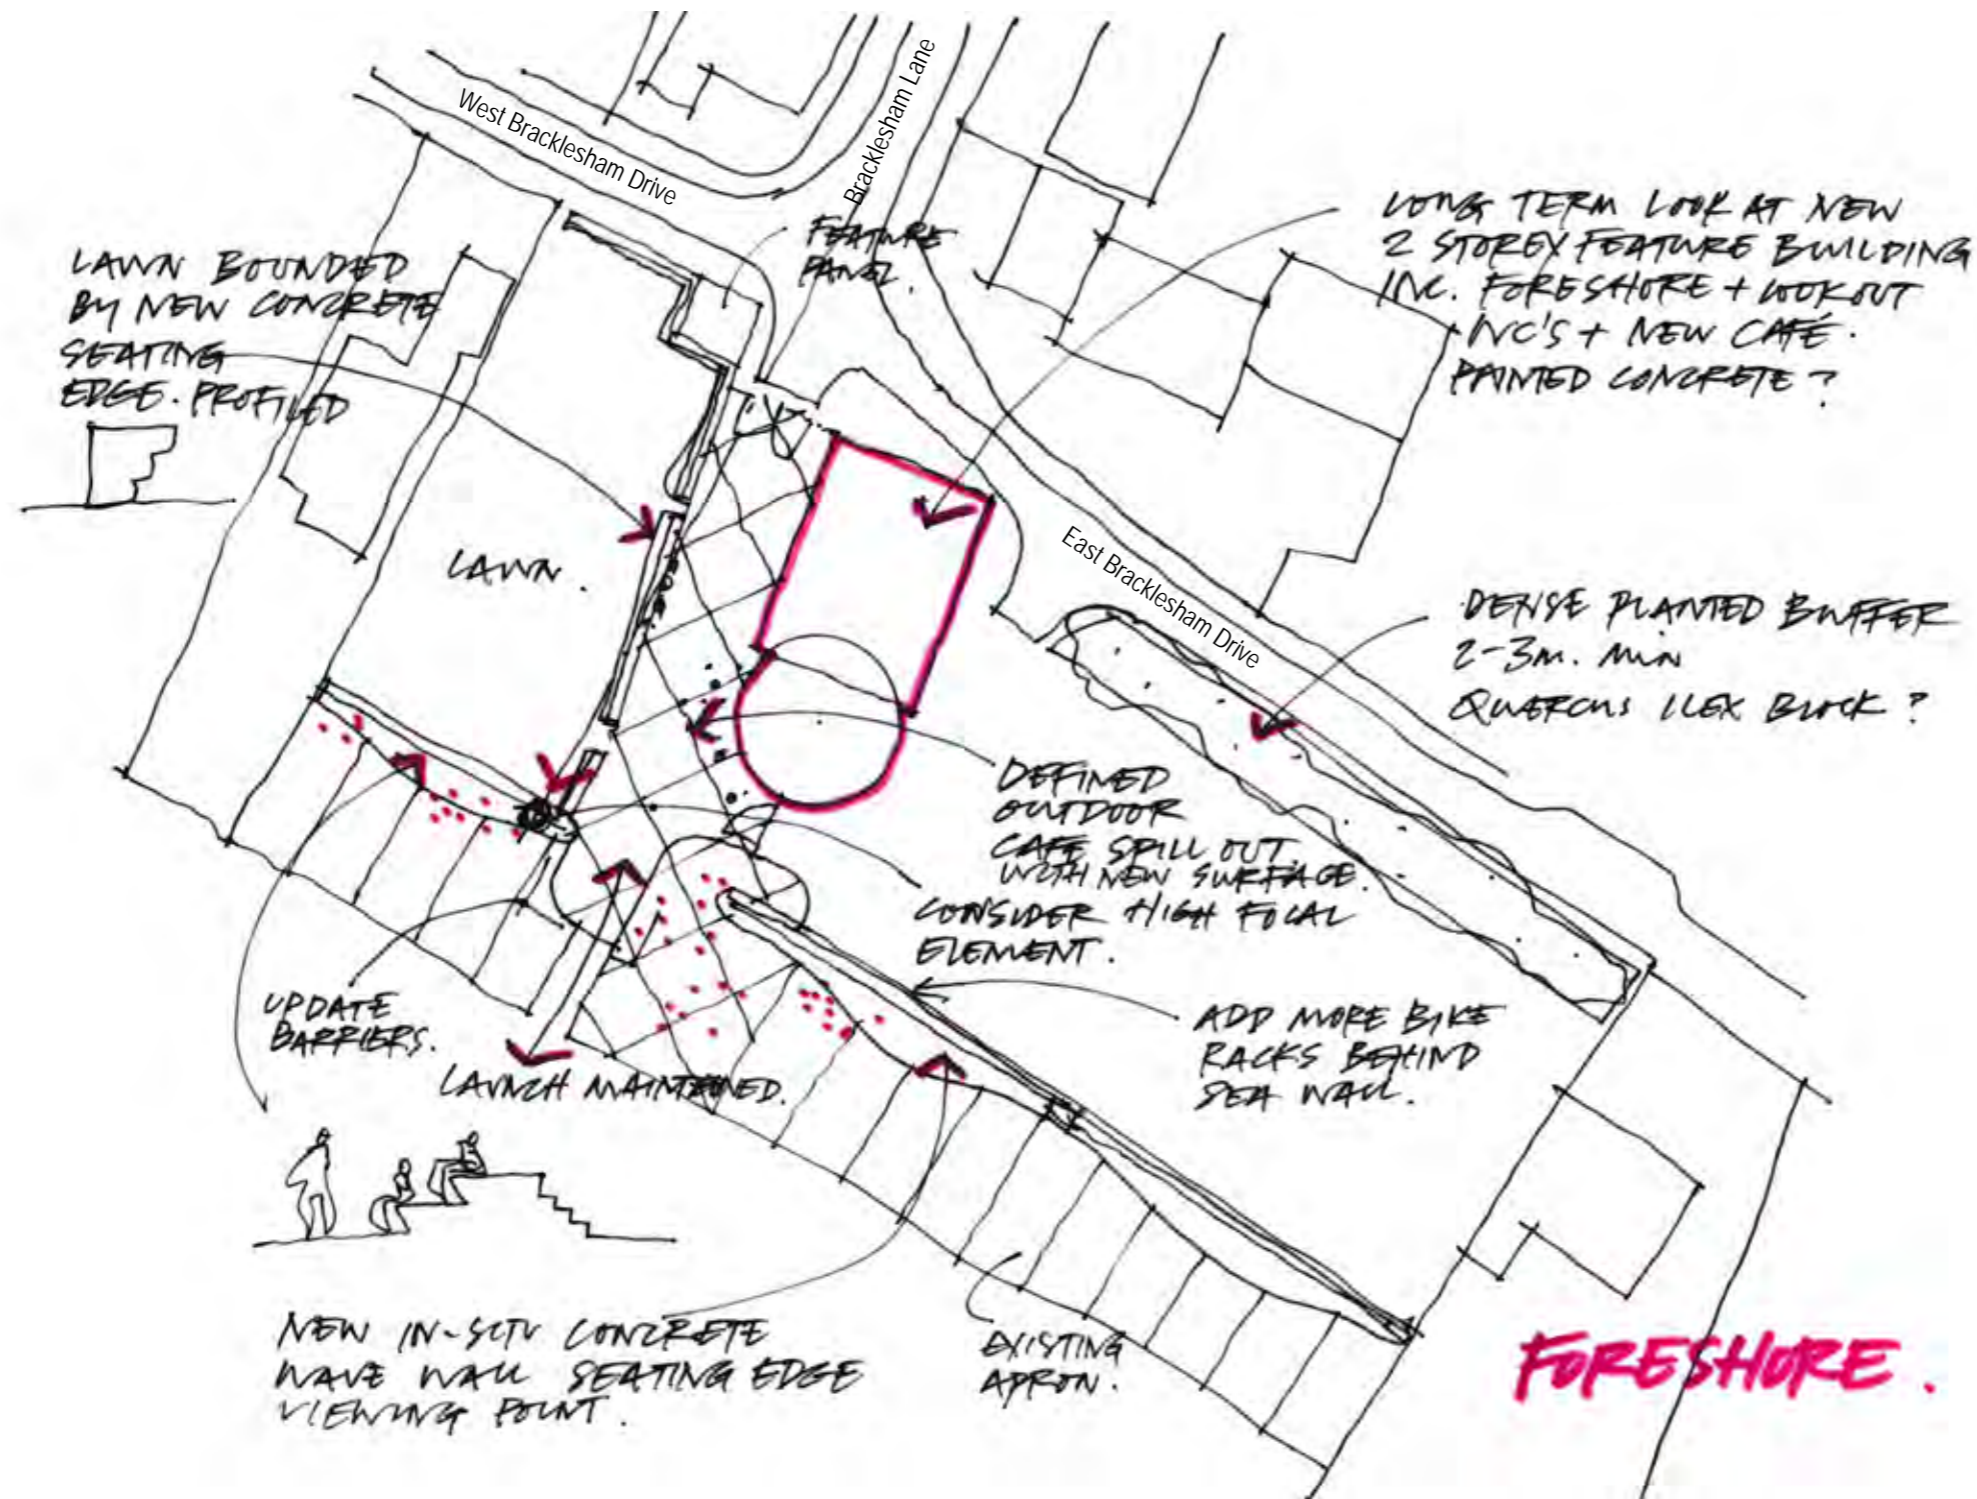 West Bracklesham Drive
Bracklesham Lane
FEATURE
PANEL.
LAWN BOUNDED
BY NEW CONCRETE
SEATING
EDGE. PROFILED
LONG TERM LOOK AT NEW
2 STOREY FEATURE BUILDING
INC. FORESHORE + LOOKOUT
INC'S + NEW CAFÉ.
PAINTED CONCRETE?
LAWN.
East Bracklesham Drive
DENSE PLANTED BUFFER
2-3m. MIN
QUERCUS ILEX BLOCK?
DEFINED
OUTDOOR
CAFE SPILL OUT.
WITH NEW SURFACE.
CONSIDER HIGH FOCAL
ELEMENT.
UPDATE
BARRIERS.
LAUNCH MAINTAINED.
ADD MORE BIKE
RACKS BEHIND
SEA WALL.
NEW IN-SITU CONCRETE
WAVE WALL SEATING EDGE
VIEWING POINT.
EXISTING
APRON.
FORESHORE.